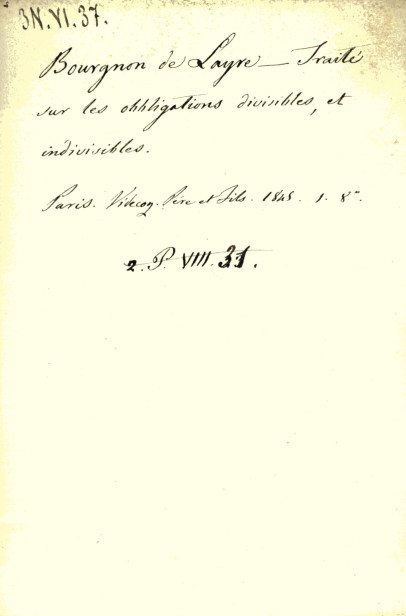 3N.VI.37.
Bourgnon de Layre — Traité
sur les obbligations divisibles, et
indivisibles.
Paris. Videcoq. Père et Fils. 1845. 1. 8°.
2. P. VIII. 31.